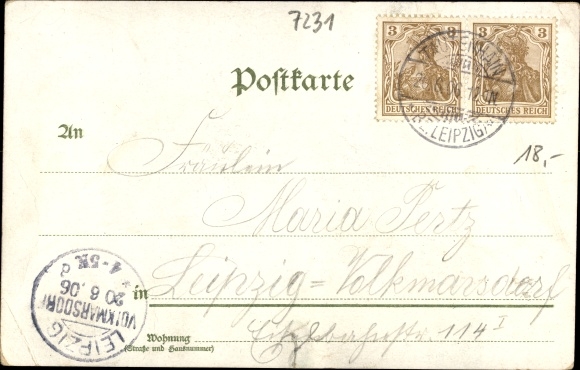 7231
3 3
DEUTSCHES REICH DEUTSCHES REICH
Postkarte
LEIPZIG
18,-
An
Fräulein
Maria Pertz
in Leipzig=Volkmarsdorf
Wohnung
(Straße und Hausnummer)
114 I
LEIPZIG
VOLKMARSDORF
20 6.06
4-5N
d